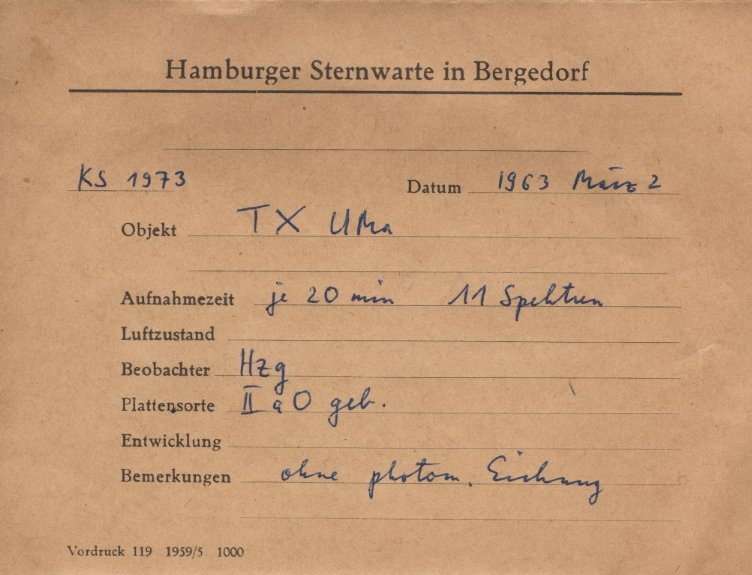 Hamburger Sternwarte in Bergedorf
KS 1973 Datum 1963 März 2
Objekt TX UMa
Aufnahmezeit je 20 min 11 Spektren
Luftzustand
Beobachter Hzg
Plattensorte II a O geb.
Entwicklung
Bemerkungen ohne photom. Eichung
Vordruck 119 1959/5 1000